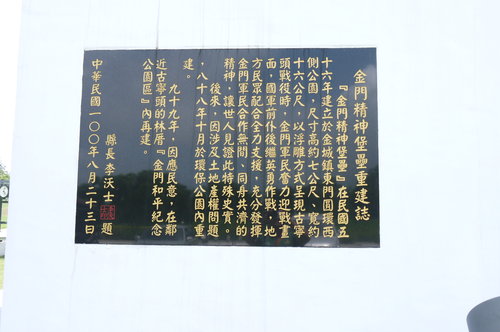 金門精神堡壘重建誌
『金門精神堡壘』在民國五
十六年建立於金城鎮東門圓環西
側公園，尺寸高約七公尺、寬約
十六公尺，以浮雕方式呈現古寧
頭戰役時，金門軍民奮力迎戰畫
面，國軍前仆後繼英勇作戰，地
方民眾配合全力支援，充分發揮
金門軍民合作無間、同舟共濟的
精神，讓世人見證此特殊史實。
後來，因涉及土地產權問題
，八十八年十月於環保公園內重
建。
九十九年，因應民意，在鄰
近古寧頭的林厝『金門和平紀念
公園區』內再建。
縣長李沃士題
中華民國一００年八月二十三日